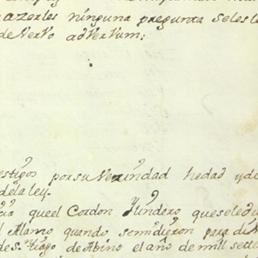 azerles ninguna pregunta seles le
de Vervo adVervum;
estigos por su Vecindad hedad y de
dela ley.
que el Cordon y lindero que se le di
el Alamo quando se midieron para di
de S.tiago de Abino el año de mil sett